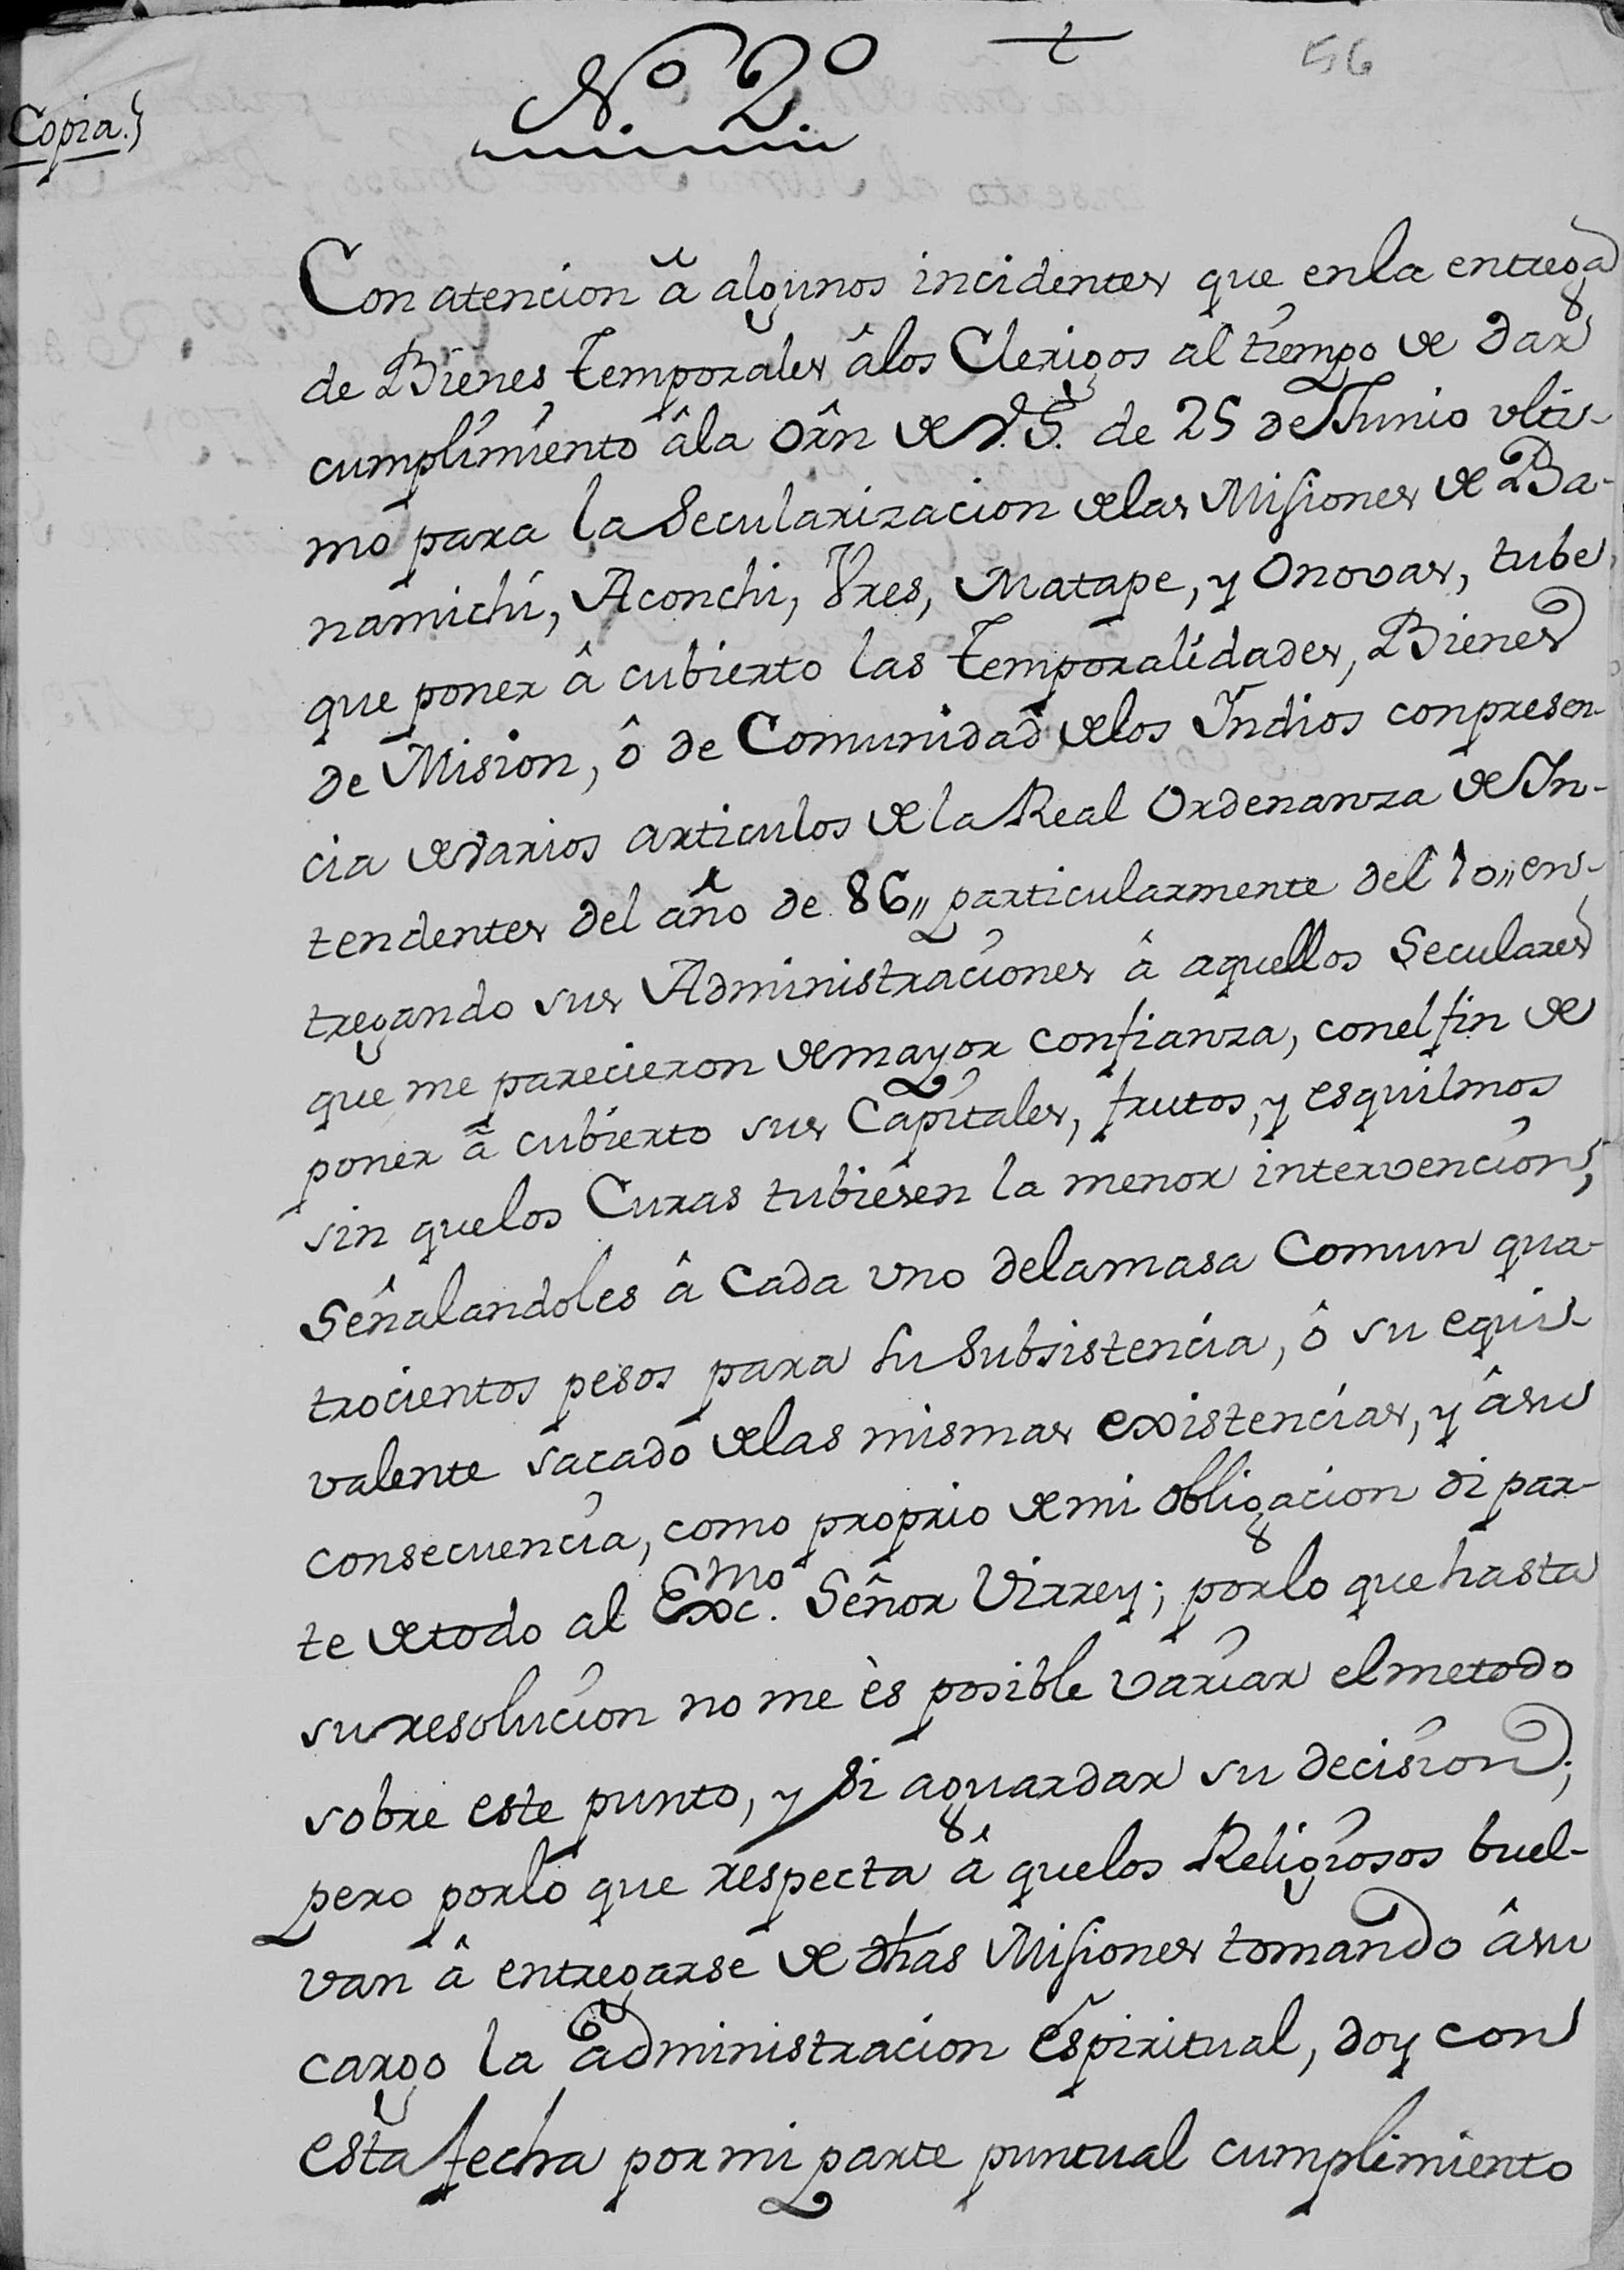 56
Nº 2º
Copia.
Con atencion â algunos incidentes que enla entrega
de Bienes temporales âlos Clerigos al tiempo de dar
cumplimiento âla orñ de V.S. de 25 de Junio ulti-
mo para la Secularizacion delas Misiones de Ba-
namichi, Aconchi, Vres, Matape, y Onovas, tube
que poner â cubierto las temporalidades, Bienes
de Mision, ô de Comunidad delos Indios conpresen-
cia devarios articulos dela Real Ordenanza de In-
tendentes del año de 86,, particularmente del 70,, en-
tregando sus Administraciones â aquellos Seculares
que me parecieron demayor confianza, conel fin de
poner â cubierto sus Capitales, frutos, y esquilmos
sin quelos Curas tubiesen la menor intervencion,
Señalandoles â cada uno delamasa Comun qua-
trocientos pesos para su Subsistencia, ô su equi-
valente sacado delas mismas existencias, y âsu
consecuencia, como proprio demi obligacion di par-
te detodo al Excmo. Señor Virrey; porlo que hasta
suresolucion no me ès posible variar elmetodo
sobre este punto, y si aguardar su decision;
pero porlo que respecta â quelos Religiosos buel-
van â entregarse de dhas Misiones tomando âsu
cargo la administracion espiritual, doy con
esta fecha pormi parte puntual cumplimiento